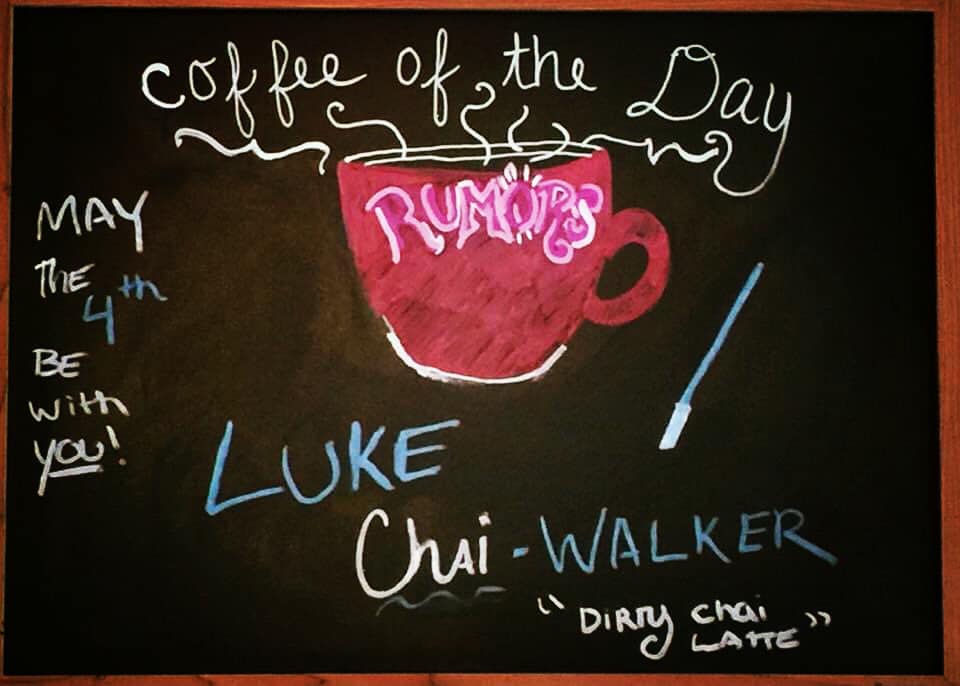 coffee of the Day
RUMORS
MAY
THE
4th
BE
with
you!
LUKE
Chai-WALKER
"Dirty chai
LATTE"